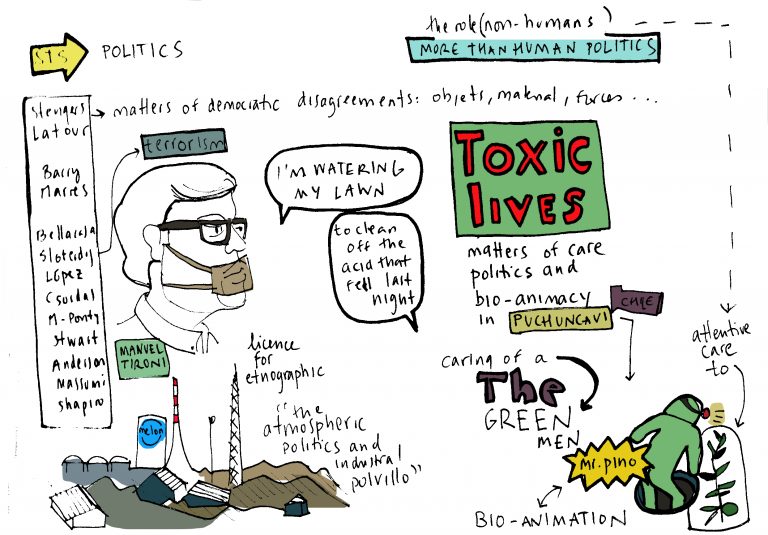 STS
POLITICS
the role (non-humans)
MORE THAN HUMAN POLITICS
Stengers
Latour
Barry
Marres
Bellacasa
Sloterdij
López
Csordas
M-Ponty
Stwart
Anderson
Massumi
Shapiro
matters of democratic disagreements: objets, material, forces ...
terrorism
I'M WATERING
MY LAWN
to clean
off the
acid that
fell last
night
MANUEL
TIRONI
licence
for
etnographic
"the
atmospheric
politics and
industrial
polvillo"
melon
TOXIC
lives
matters of care
politics and
bio-animacy
in PUCHUNCAVI
CHILE
caring of a
The
GREEN
MEN
Mr. pino
BIO-ANIMATION
attentive
care
to